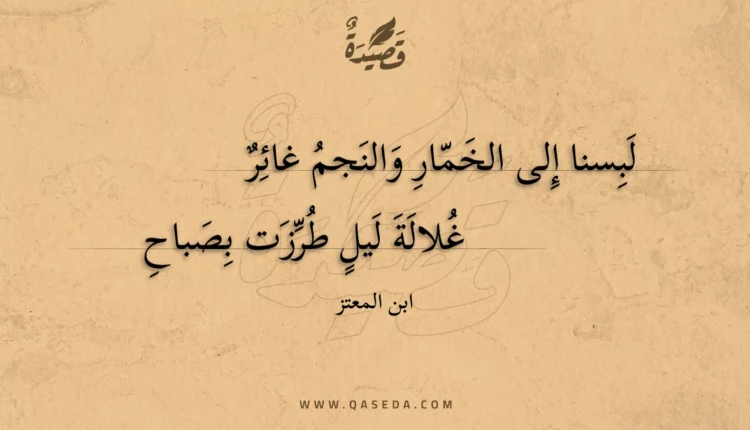 قَصِيْدَةٌ
لَبِسنا إِلى الخَمّارِ وَالنَجمُ غائِرٌ
غُلالَةَ لَيلٍ طُرِّزَت بِصَباحِ
ابن المعتز
WWW.QASEDA.COM